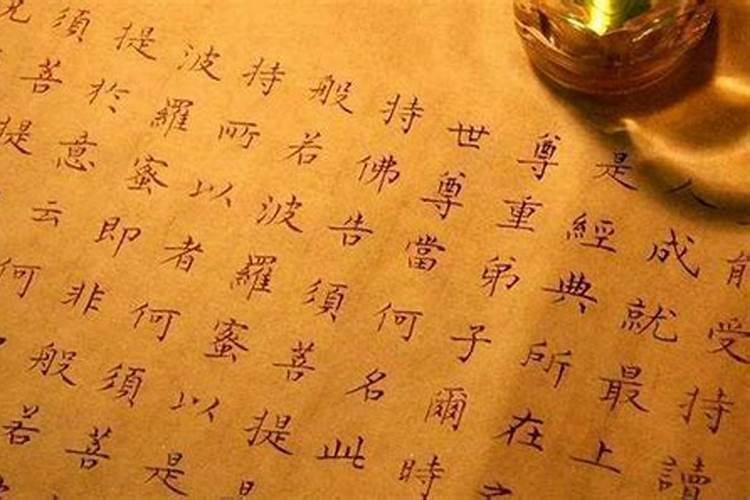 能受持讀
人成就最上
是經典所在
尊重弟子爾時
世尊當何名此
持佛告須菩提是
般若波羅蜜以是
持所以者何須菩
波羅蜜即非般若
提於意云何
須菩提